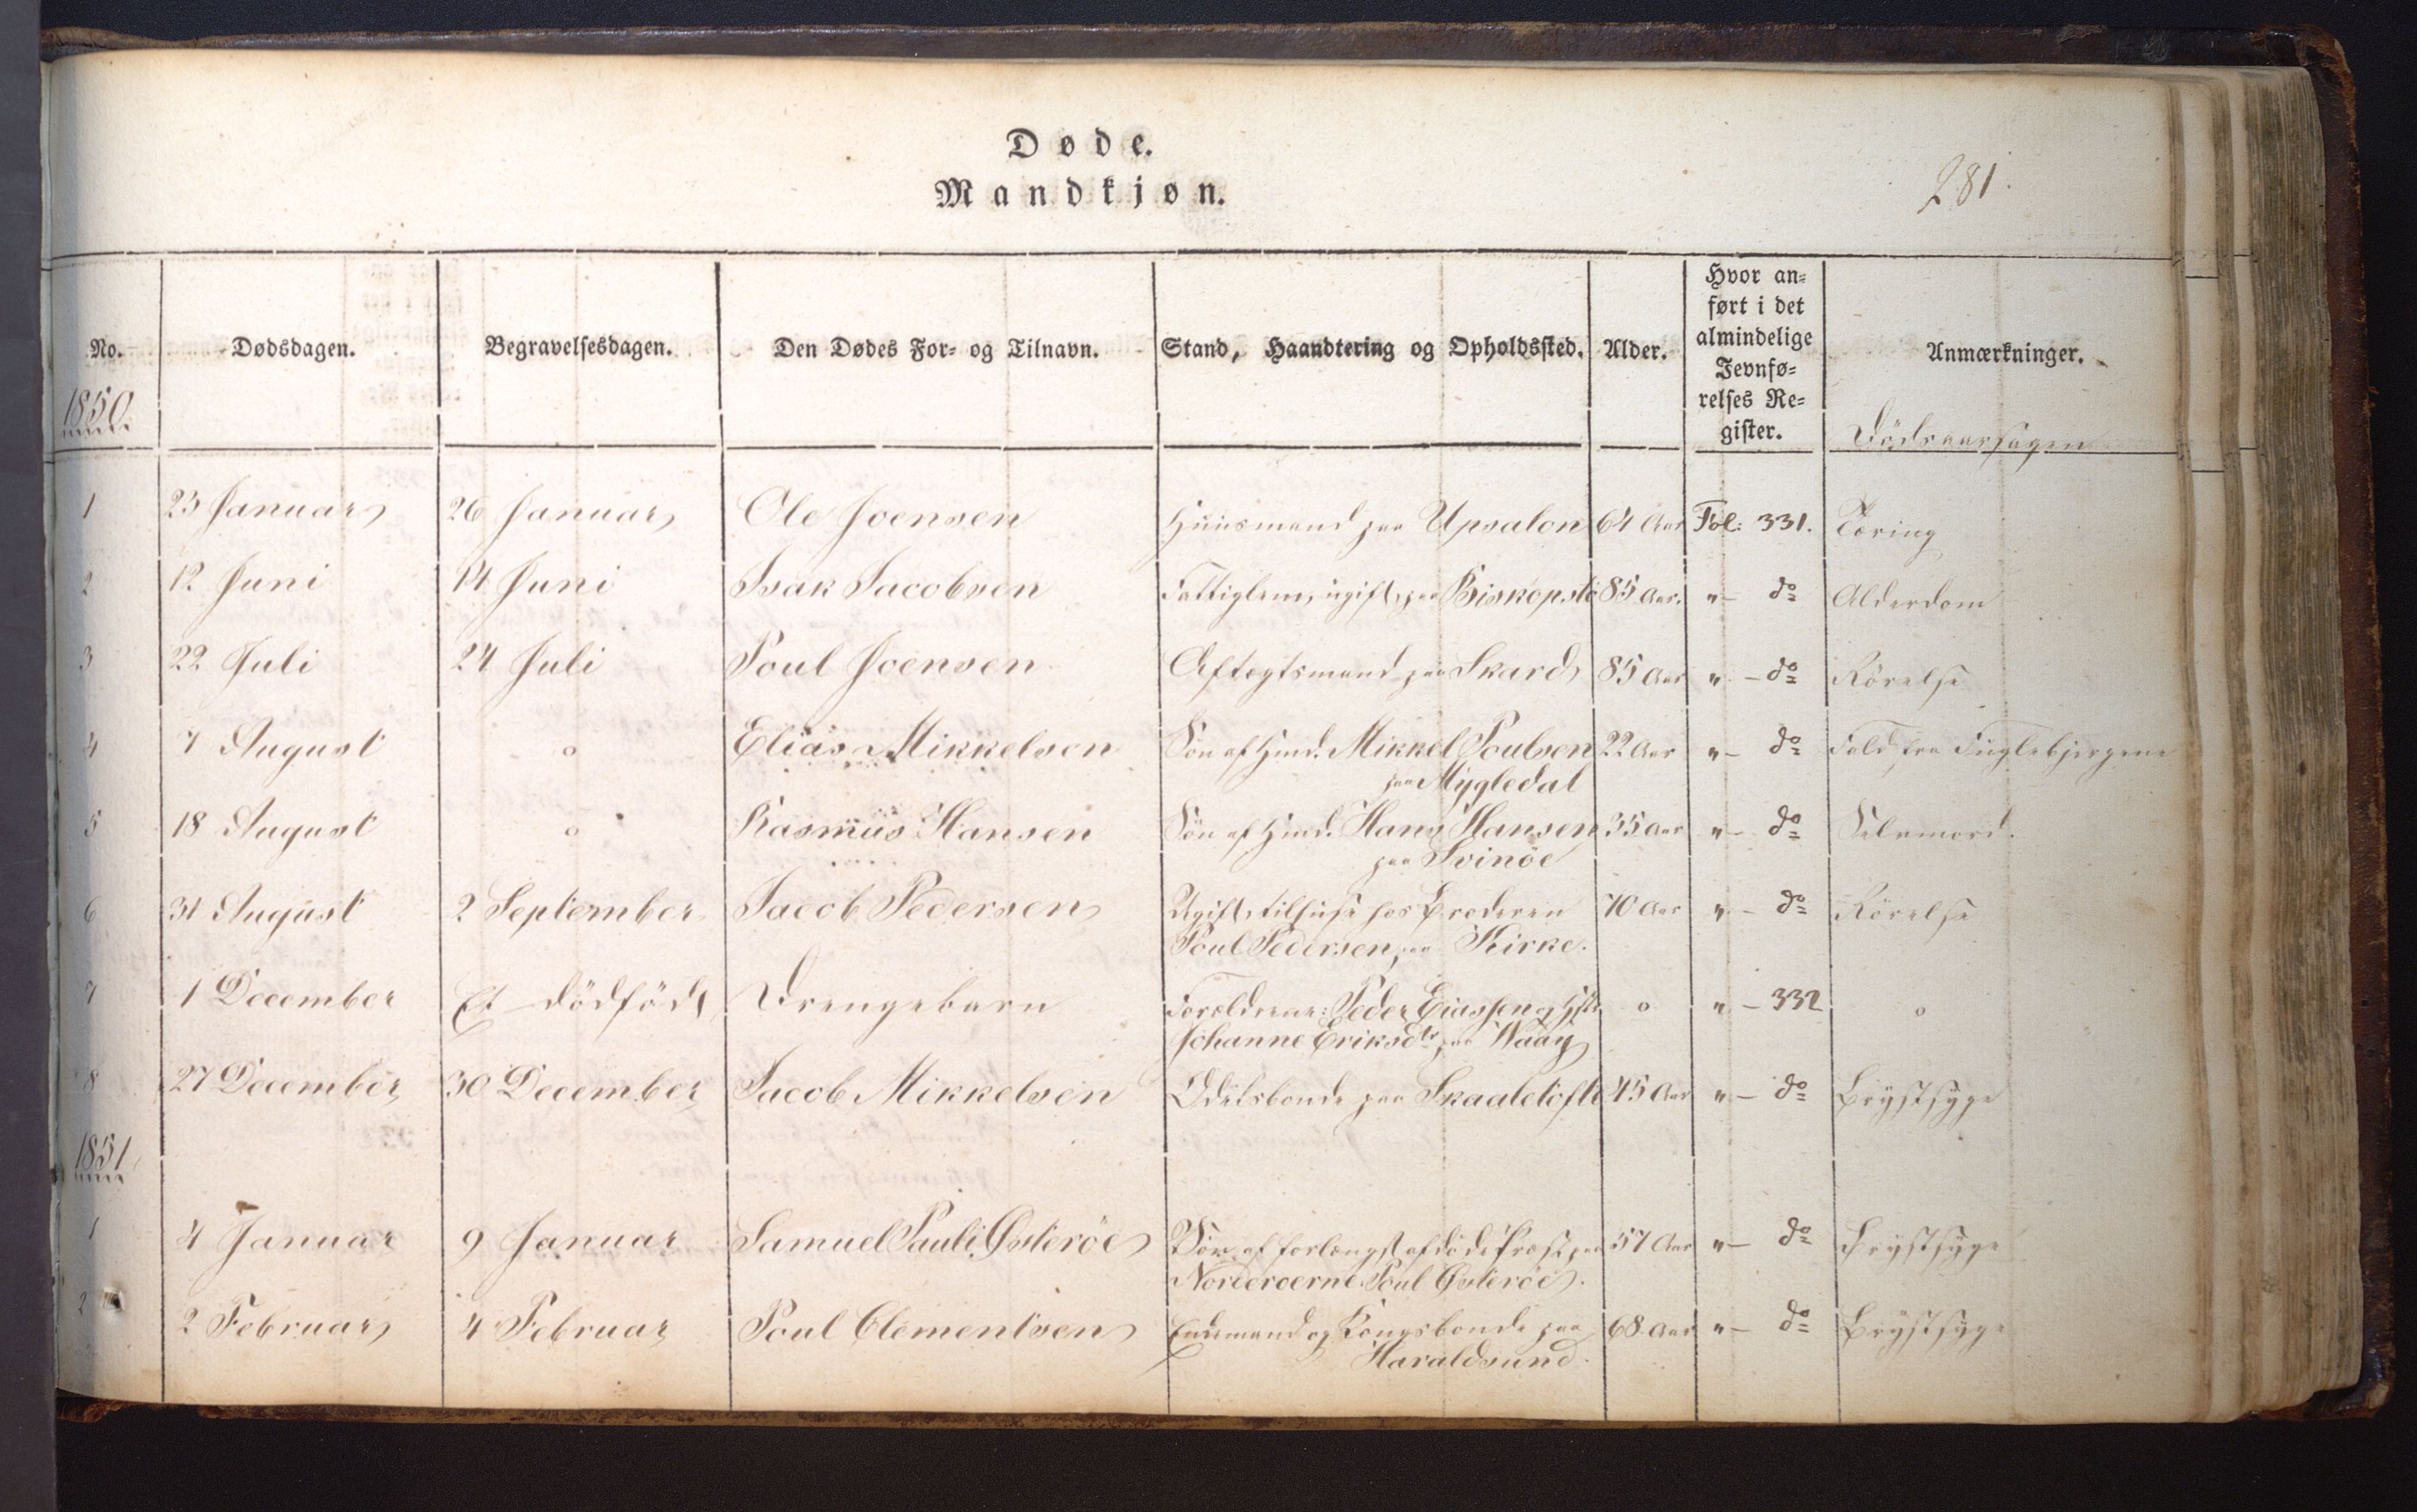 Døde.
Mandkjøn.
281.
No. Dødsdagen. Begravelsesdagen. Den Dødes For- og Tilnavn. Stand, Haandtering og Opholdssted. Alder. Hvor an-
ført i det
almindelige
Jevnfø-
relses Re-
gister. Anmærkninger.
1850. Dödsaarsagen
1 23 Januar 26 Januar Ole Joensen Huusmand paa Upsalon 64 Aar Fol: 331. Tæring
2 12 Juni 14 Juni Isak Jacobsen Fattiglem, ugift, paa Biskopstö 85 Aar. " - do Alderdom
3 22 Juli 24 Juli Poul Joensen Aftægtsmand paa Skard 85 Aar " - do Rörelse
4 7 August o Elias Mikkelsen Sön af Hmd. Mikkel Poulsen 22 Aar " - do Fald fra Fuglebjergene
paa Mygledal
5 18 August o Rasmus Hansen Sön af Hmd. Hans Hansen 35 Aar " - do Selvmord.
paa Svinöe
6 31 August 2 September Jacob Pedersen Ugift, tilhuse hos Broderen 70 Aar " - do Rörelse
Poul Pedersen, paa Kirke.
7 1 December Et dödfödt Drengebarn Forældrene: Peder Eliassen og Hstr. o " - 332 o
Johanne Eriksdtr paa Waag
8 27 December 30 December Jacob Mikkelsen Odelsbonde paa Skaaletofte 45 Aar " - do Brystsyge
1851.
1 4 Januar 9 Januar Samuel Pauli Østeröe Sön af forlængst afdöde Provst paa 57 Aar " - do Brystsyge
Norderoerne Poul Østeröe.
2 2 Februar 4 Februar Poul Clementsen Enkemand og Kongsbonde paa 68 Aar " - do Brystsyge
Haraldsund.